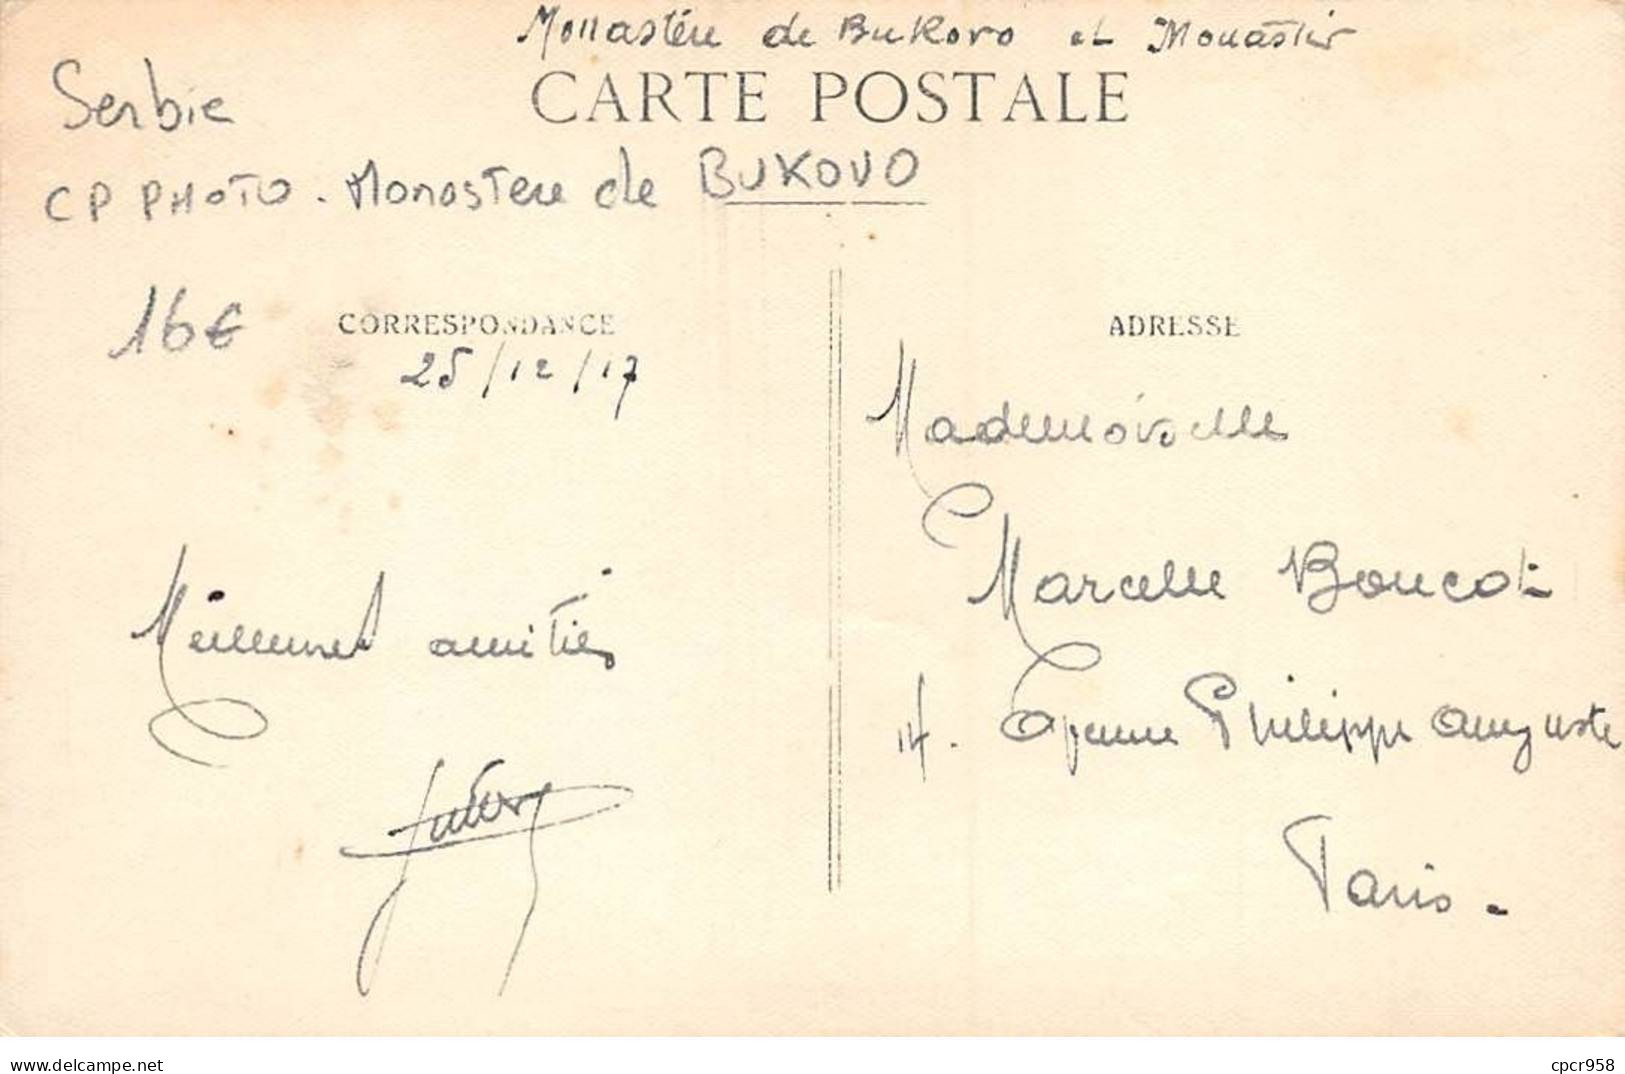 Monastère de Bukovo et Monastir
CARTE POSTALE
Serbie
CP PHOTO - Monastere de BUKOVO
16€
CORRESPONDANCE
25/12/17
Meilleures amitiés
ADRESSE
Mademoiselle
Marcelle Boucot
14. Avenue Philippe Auguste
Paris.
delcampe.net
cpcr958